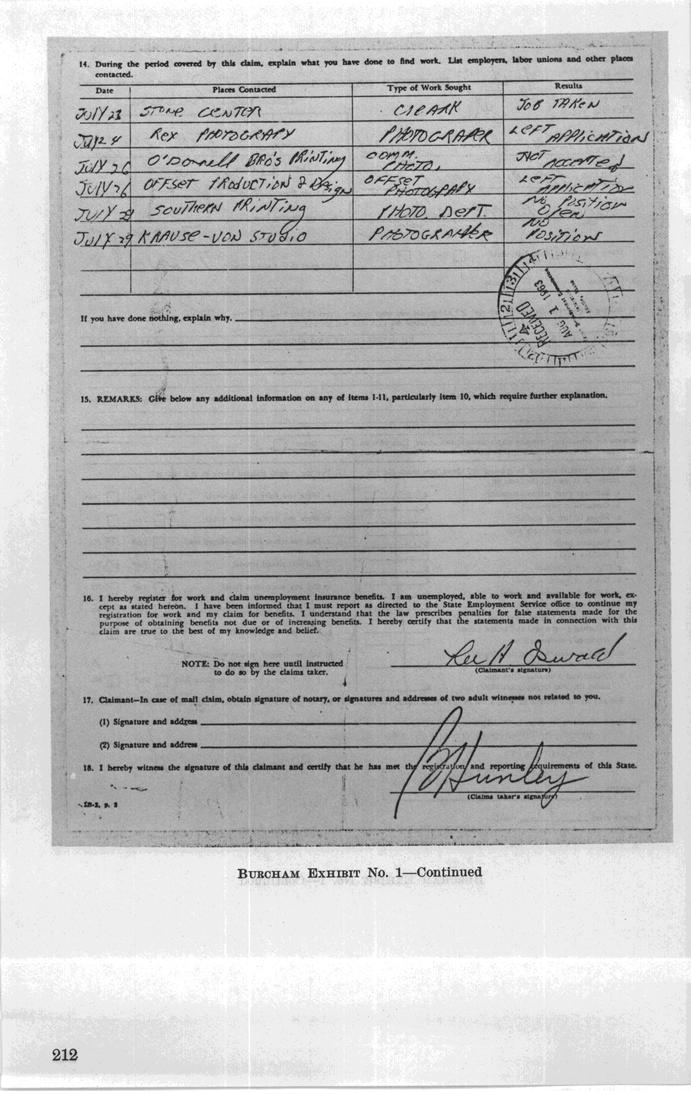 14. During the period covered by this claim, explain what you have done to find work. List employers, labor unions and other places
contacted.
Date Places Contacted Type of Work Sought Results
JULY 23 STONE CENTER CLEARK JOB TAKEN
REX PHOTOGRAPY PHOTOGRAPER LEFT APPLICATION
JULY 26 O'DONNELL BRO'S PRINTING COMM. PHOTO. NOT
JULY 26 OFFSET PRODUCTION & DESIGN OFFSET PHOTOGRAPY LEFT APPLICATION
JULY 29 SOUTHERN PRINTING PHOTO. DEPT. NO POSITION OPEN
JULY 29 KRAUSE-VON STUDIO PHOTOGRAPHER NO POSITIONS
RECEIVED
AUG 1 1963
If you have done nothing, explain why.
15. REMARKS: Give below any additional information on any of items 1-11, particularly item 10, which require further explanation.
16. I hereby register for work and claim unemployment insurance benefits. I am unemployed, able to work and available for work, ex-
cept as stated hereon. I have been informed that I must report as directed to the State Employment Service office to continue my
registration for work and my claim for benefits. I understand that the law prescribes penalties for false statements made for the
purpose of obtaining benefits not due or of increasing benefits. I hereby certify that the statements made in connection with this
claim are true to the best of my knowledge and belief.
Lee H Oswald
NOTE: Do not sign here until instructed
to do so by the claims taker.
(Claimant's signature)
17. Claimant—In case of mail claim, obtain signature of notary, or signatures and addresses of two adult witnesses not related to you.
(1) Signature and address
(2) Signature and address
18. I hereby witness the signature of this claimant and certify that he has met the registration and reporting requirements of this State.
Hunley
(Claims taker's signature)
IB-2, p. 2
BURCHAM EXHIBIT No. 1—Continued
212